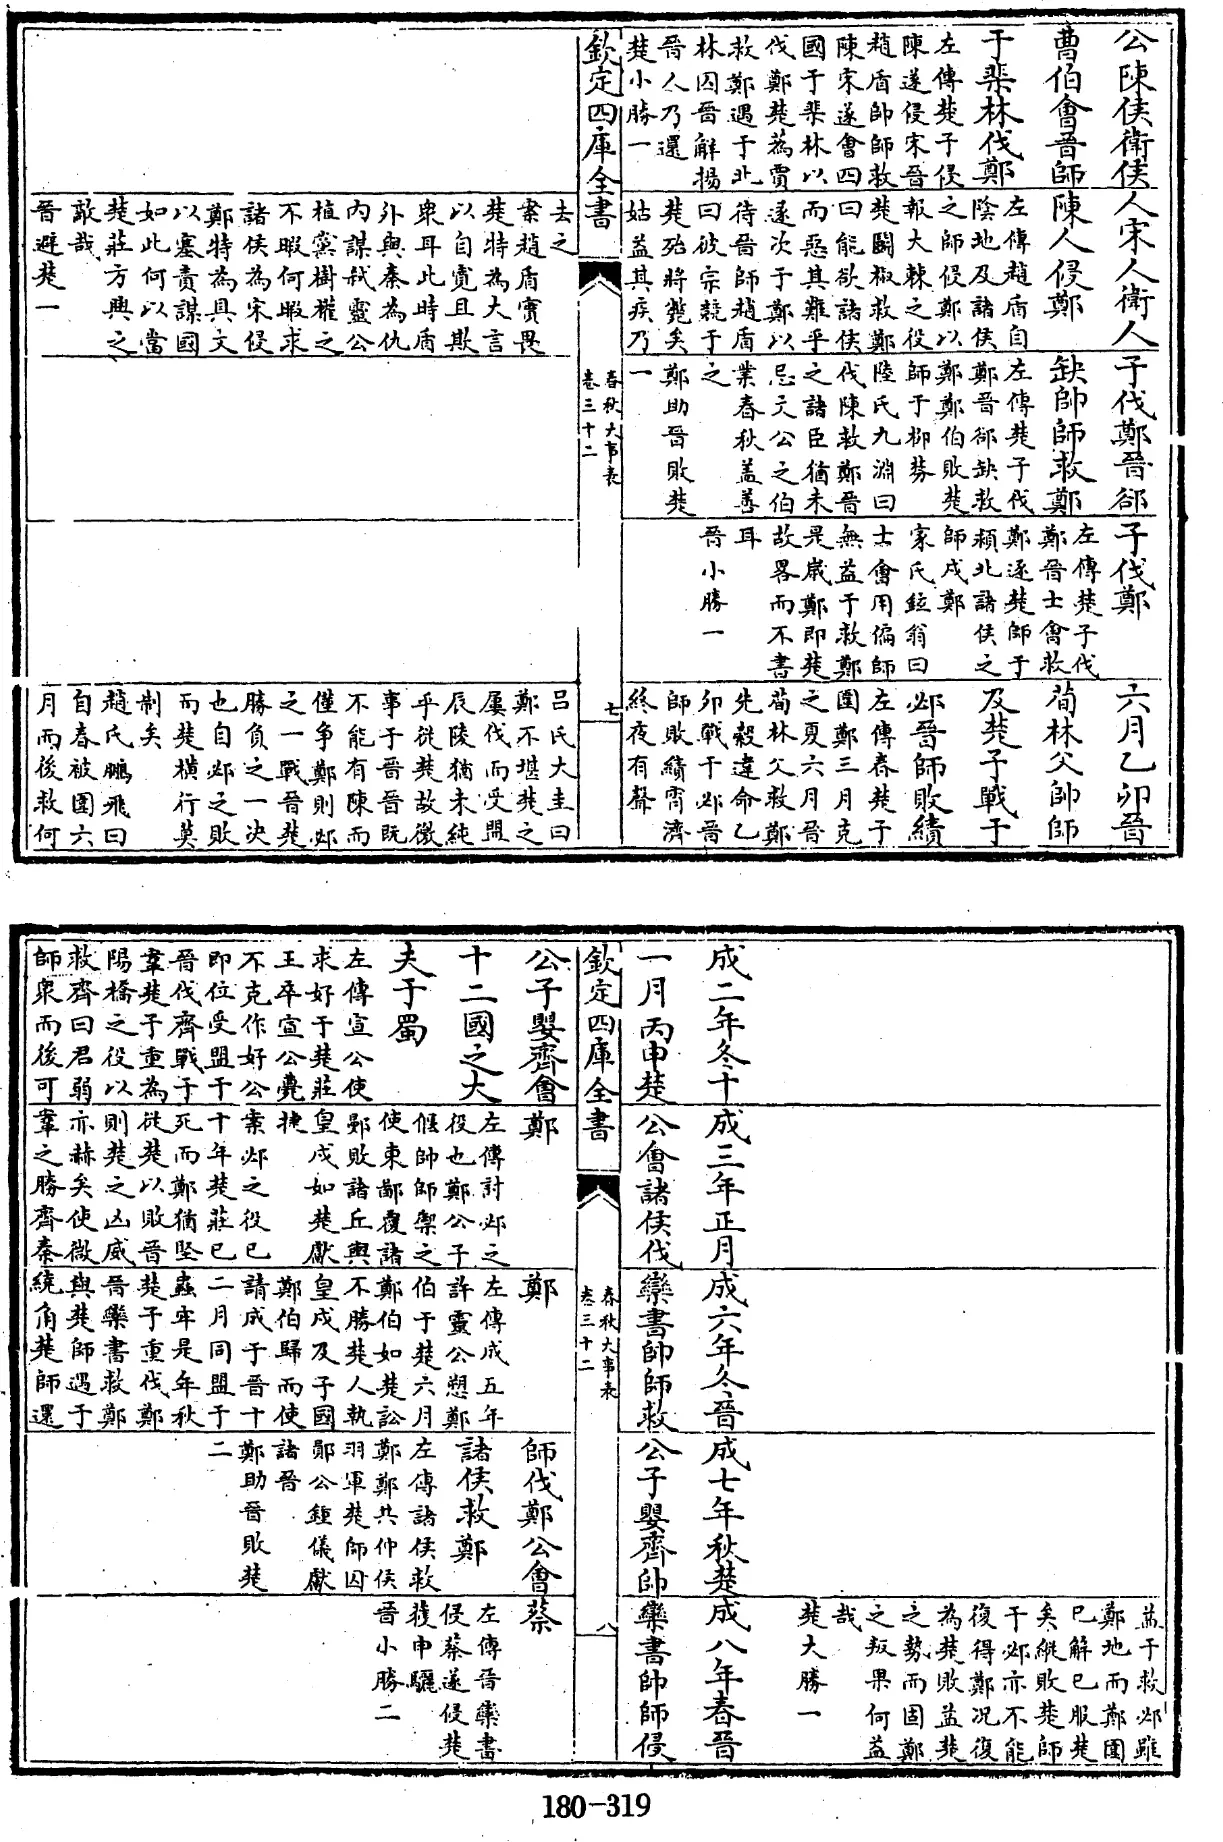 公陳侯衛侯
曹伯會晉師
于棐林伐鄭
左傳楚子侵
陳遂侵宋晉
趙盾帥師救
陳宋遂會四
國于棐林以
伐鄭楚蒍賈
救鄭遇于北
林囚晉解揚
晉人乃還
楚小勝一
人宋人衛人
陳人侵鄭
左傳趙盾自
陰地及諸侯
之師侵鄭以
報大棘之役
楚鬭椒救鄭
曰能欲諸侯
而惡其難乎
遂次于鄭以
待晉師趙盾
曰彼宗競于
楚殆將斃矣
姑益其疾乃
子伐鄭晉郤
缺帥師救鄭
左傳楚子伐
鄭晉郤缺救
鄭鄭伯敗楚
師于柳棼
陸氏九淵曰
伐陳救鄭晉
之諸臣猶未
忘文公之伯
業春秋蓋善
之
鄭助晉敗楚
一
子伐鄭
左傳楚子伐
鄭晉士會救
鄭逐楚師于
潁北諸侯之
師戍鄭
家氏鉉翁曰
士會用偏師
無益于救鄭
是嵗鄭即楚
故畧而不書
耳
晉小勝一
六月乙卯晉
荀林父帥師
及楚子戰于
邲晉師敗績
左傳春楚子
圍鄭三月克
之夏六月晉
荀林父救鄭
先縠違命乙
卯戰于邲晉
師敗績宵濟
終夜有聲
欽定四庫全書
春秋大事表
卷三十二
七
去之
案趙盾實畏
楚特為大言
以自寛且欺
衆耳此時盾
外與秦為仇
内謀弑靈公
植黨樹權之
不暇何暇求
諸侯為宋侵
鄭特為具文
以塞責謀國
如此何以當
楚莊方興之
敵哉
晉避楚一
呂氏大圭曰
鄭不堪楚之
屢伐而受盟
辰陵猶未純
乎從楚故徼
事于晉晉既
不能有陳而
僅爭鄭則邲
之一戰晉楚
勝負之一决
也自邲之敗
而楚橫行莫
制矣
趙氏鵬飛曰
自春被圍六
月而後救何
益于救邲雖
鄭地而鄭圍
已解已服楚
矣縱敗楚師
于邲亦不能
復得鄭况復
為楚敗益楚
之勢而固鄭
之叛果何益
哉
楚大勝一
成二年冬十
一月丙申楚
成三年正月
公會諸侯伐
成六年冬晉
欒書帥師救
成七年秋楚
公子嬰齊帥
成八年春晉
欒書帥師侵
欽定四庫全書
春秋大事表
卷三十二
八
公子嬰齊會
十二國之大
夫于蜀
左傳宣公使
求好于楚莊
王卒宣公薨
不克作好公
即位受盟于
晉伐齊戰于
鞌楚子重為
陽橋之役以
救齊曰君弱
師衆而後可
鄭
左傳討邲之
役也鄭公子
偃帥師禦之
使東鄙覆諸
鄤敗諸丘輿
皇戍如楚獻
捷
案邲之役已
十年楚莊已
死而鄭猶堅
從楚以敗晉
則楚之凶威
亦赫矣使微
鞌之勝齊秦
鄭
左傳成五年
許靈公愬鄭
伯于楚六月
鄭伯如楚訟
不勝楚人執
皇戍及子國
鄭伯歸而使
請成于晉十
二月同盟于
蟲牢是年秋
楚子重伐鄭
晉欒書救鄭
與楚師遇于
繞角楚師還
師伐鄭公會
諸侯救鄭
左傳諸侯救
鄭鄭共仲侯
羽軍楚師囚
鄖公鍾儀獻
諸晉
鄭助晉敗楚
二
蔡
左傳晉欒書
侵蔡遂侵楚
獲申驪
晉小勝二
180-319